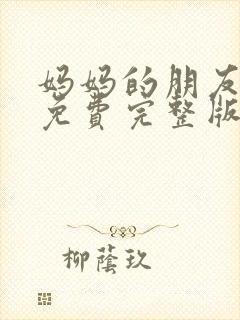 妈妈的朋友
免費完整版
柳蔭玖